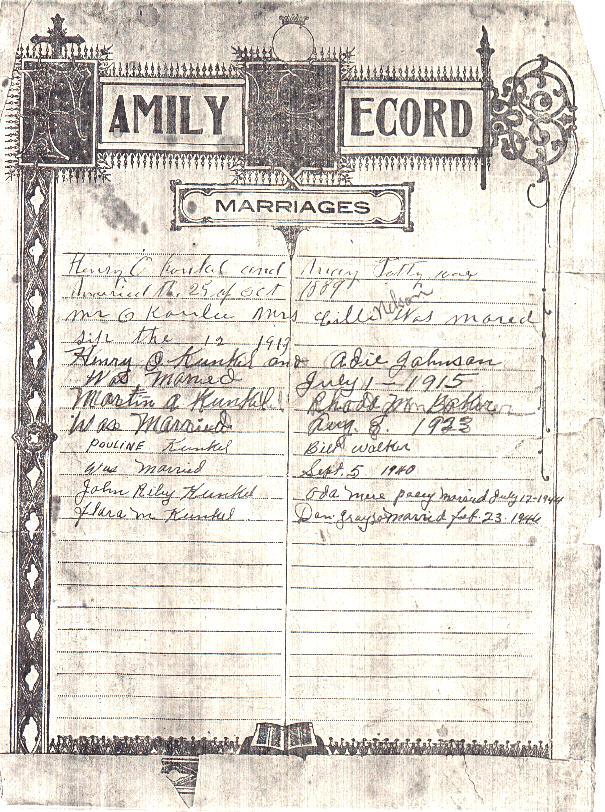 FAMILY RECORD
MARRIAGES
Henry O Kunkel and Patty was
Married the 25 of oct 1889
Nelson
mr O Kunkel Mrs Was mared
the 12
Henry O Kunkel and Adie Johnson
Was Married July 1 - 1915
Martin A Kunkel Rhoda
Was Married Aug 8. 1923
Pouline Kunkel Bill Walker
was married Sept 5 1940
John Riley Kunkel Oda mere married July 12-1944
Flara m Kunkel Dan married feb. 23. 1946